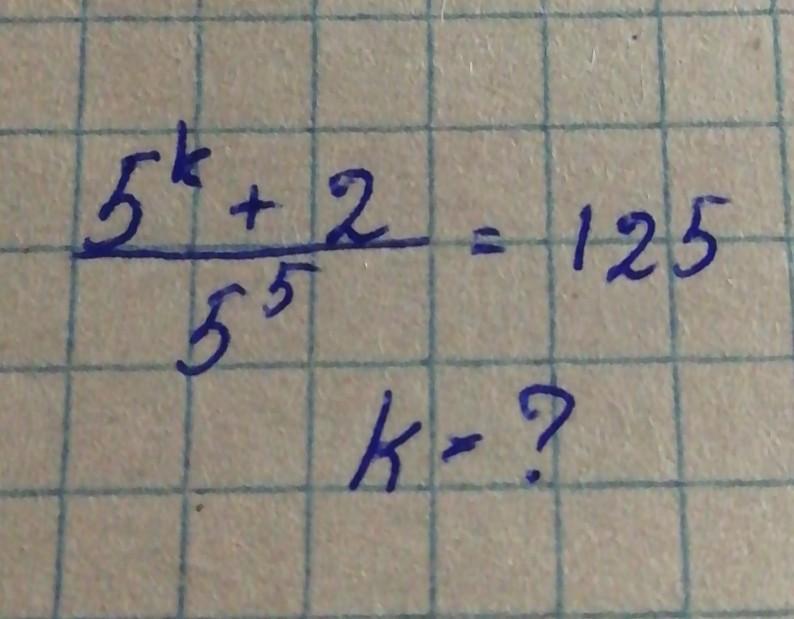 5^k + 2 / 5^5 = 125
k - ?